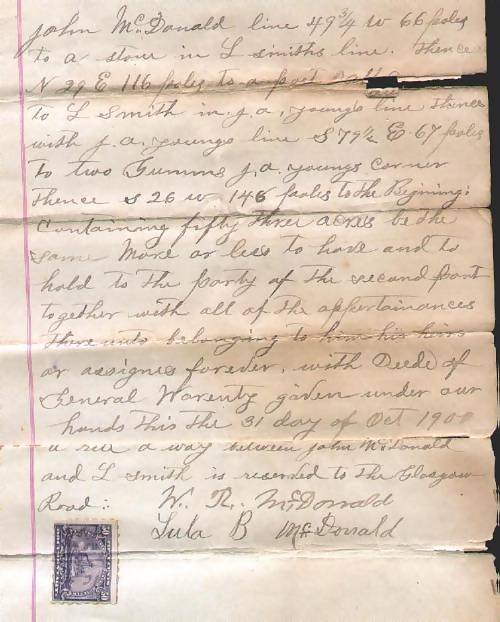 john McDonald line 49 3/4 w 66 pooles
to a stone in L smiths line. thence
N 29 E 116 pooles to a post
to L Smith in j. a. youngs line thence
with j. a. youngs line S 79 1/2 E 67 pooles
to two Gumms j. a. youngs corner
thence s 26 w 146 pooles to the Begining:
Containing fifty three acres be the
same More or less to have and to
hold to the party of the second part
together with all of the appertainances
there unto belonging to him his heirs
or assignes forever. with Deede of
General Warenty given under our
hands this the 31 day of Oct 1900
a rite a way between john McDonald
and L smith is reserved to the Glasgow
Road:. W. R. McDonald
Lula B McDonald